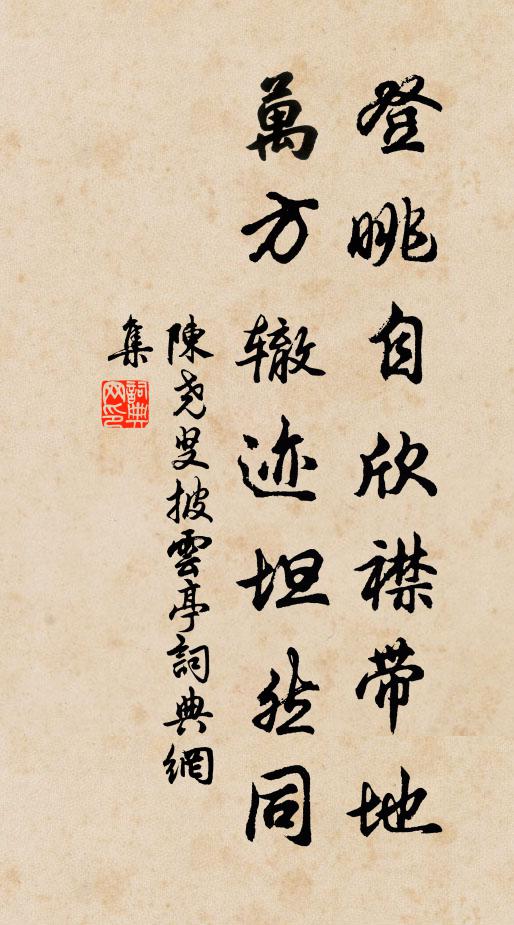 登眺自欣襟带地
萬方辙迹坦然同
陳尧叟披雲亭詞典網
集
詞典网印